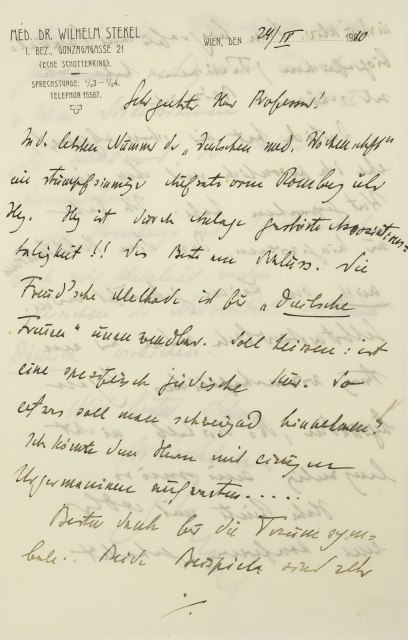 MED. DR. WILHELM STEKEL
I. BEZ., GONZAGAGASSE 21
(ECKE SCHOTTENRING).
SPRECHSTUNDE: ½3–½4.
TELEPHON 15587.
WIEN, DEN 24/II 1910
Sehr geehrter Herr Professor!
In d. letzten Nummer der „Deutschen med. Wochenschft"
ein stumpfsinniges Referat vom Romberg über
Hy. Hy ist durch Anlage gestörte Assoziations-
tätigkeit!! Das Beste am Schluss. Die
Freud'sche Methode ist bei „deutsche
Frauen" unanwendbar. Soll heissen: ist
eine spezifisch jüdische Kur. So
etwas soll man schweigend hinnehmen?
Ich könnte dem Herrn mit einigen
Urgermaninen aufwarten.....
Besten Dank für die Traumsym-
bole. Beide Beispiele sind sehr
./.